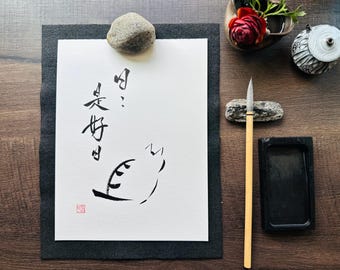 日〻
是好日